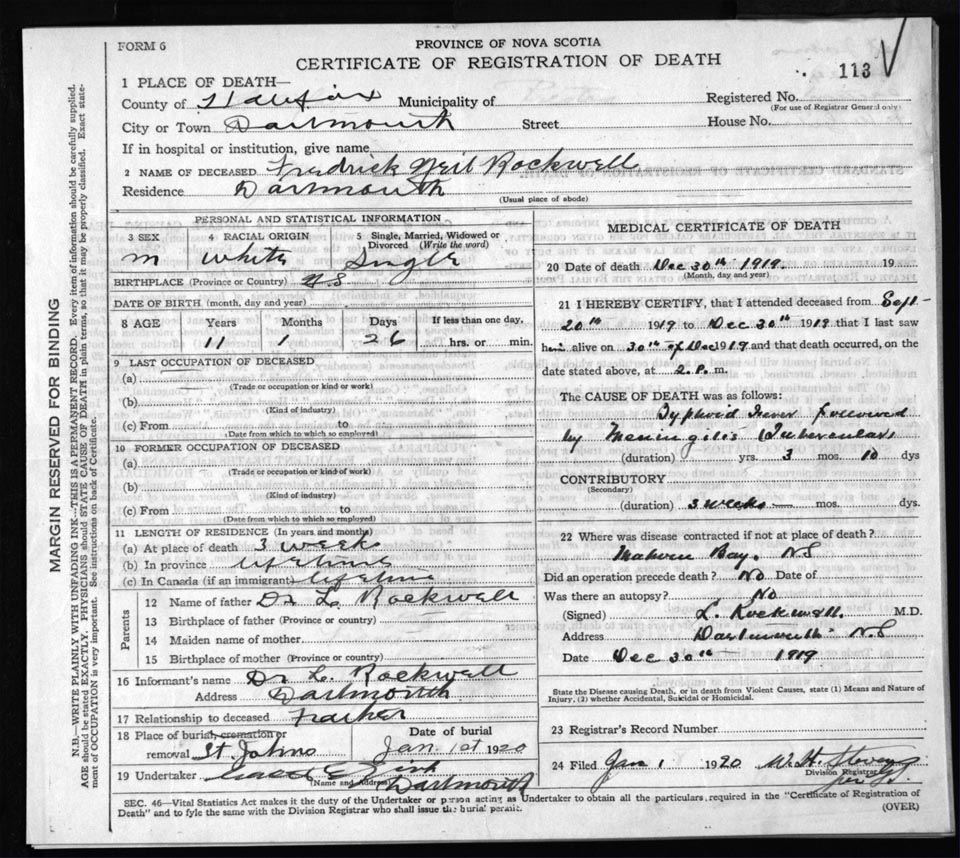 FORM 6
PROVINCE OF NOVA SCOTIA
CERTIFICATE OF REGISTRATION OF DEATH
113
1 PLACE OF DEATH—
County of Halifax Municipality of Registered No.
(For use of Registrar General only)
City or Town Dartmouth Street House No.
If in hospital or institution, give name
2 NAME OF DECEASED Fredrick Neil Rockwell
Residence Dartmouth
(Usual place of abode)
PERSONAL AND STATISTICAL INFORMATION
3 SEX 4 RACIAL ORIGIN 5 Single, Married, Widowed or Divorced (Write the word)
M White Single
BIRTHPLACE (Province or Country) N.S
DATE OF BIRTH (month, day and year)
8 AGE Years Months Days If less than one day,
11 1 26 hrs. or min.
9 LAST OCCUPATION OF DECEASED
(a)
(Trade or occupation or kind or work)
(b)
(Kind of industry)
(c) From to
(Date from which to which so employed)
10 FORMER OCCUPATION OF DECEASED
(a)
(Trade or occupation or kind of work)
(b)
(Kind of industry)
(c) From to
(Date from which to which so employed)
11 LENGTH OF RESIDENCE (In years and months)
(a) At place of death 3 weeks
(b) In province lifetime
(c) In Canada (if an immigrant) lifetime
Parents
12 Name of father Dr L. Rockwell
13 Birthplace of father (Province or country)
14 Maiden name of mother
15 Birthplace of mother (Province or country)
16 Informant's name Dr L. Rockwell
Address Dartmouth
17 Relationship to deceased Father
18 Place of burial, cremation or removal St. Johns
Date of burial
Jan. 1st 1920
19 Undertaker
(Name and Address)
Dartmouth
MEDICAL CERTIFICATE OF DEATH
20 Date of death Dec 30th 1919. 19
(Month, day and year)
21 I HEREBY CERTIFY, that I attended deceased from Sept-
20th 1919 to Dec 30th 1919 that I last saw
him alive on 30th of Dec 1919 and that death occurred, on the
date stated above, at 2. P. m.
The CAUSE OF DEATH was as follows:
Typhoid Fever followed
by Meningitis (Tubercular)
(duration) yrs. 3 mos. 10 dys
CONTRIBUTORY
(Secondary)
(duration) 3 weeks mos. dys.
22 Where was disease contracted if not at place of death?
Mahone Bay. NS
Did an operation precede death? No Date of
Was there an autopsy? No
(Signed) L. Rockwell. M.D.
Address Dartmouth N.S
Date Dec 30th 1919
State the Disease causing Death, or in death from Violent Causes, state (1) Means and Nature of
Injury, (2) whether Accidental, Suicidal or Homicidal.
23 Registrar's Record Number
24 Filed Jan 1 1920 W. H.
Division Registrar
SEC. 46—Vital Statistics Act makes it the duty of the Undertaker or person acting as Undertaker to obtain all the particulars required in the "Certificate of Registration of
Death" and to fyle the same with the Division Registrar who shall issue the burial permit. (OVER)
MARGIN RESERVED FOR BINDING
N.B.—WRITE PLAINLY WITH UNFADING INK—THIS IS A PERMANENT RECORD. Every item of information should be carefully supplied.
AGE should be stated EXACTLY. PHYSICIANS should STATE CAUSE OF DEATH in plain terms, so that it may be properly classified. Exact state-
ment of OCCUPATION is very important. See instructions on back of Certificate.